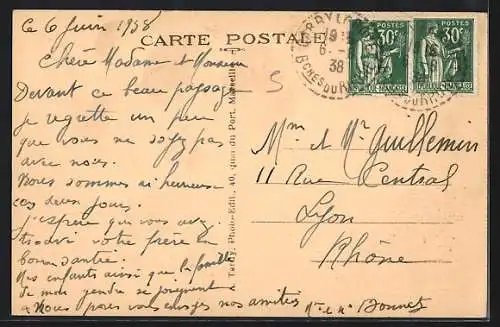 Ce 6 Juin 1938
CARTE POSTALE
Chère Madame et Monsieur
Devant ce beau paysage
je regrette un peu
que vous ne soyez pas
avec nous.
Nous sommes si heureux
ces deux jours.
J'espère que vous avez
trouvé votre frère en
bonne santé.
Mes enfants ainsi que la famille
de mon gendre se joignent
à Nous pour vous envoyer nos amitiés
Mme et Mr Bonnet
Tardy, Photo-Edit., 40, Quai du Port, Marseille
CARRY LE
19
6 -
38
BCHES DU RH
POSTES
30c
REPUBLIQUE FRANÇAISE
POSTES
30c
REPUBLIQUE FRANÇAISE
S
Mme et Mr Guillemin
11 Rue Central
Lyon
Rhône